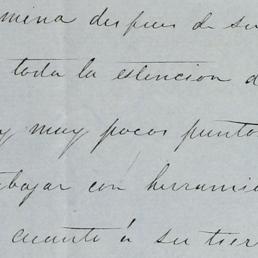 mina despues de su
toda la estencion d
y muy pocos punto
abajar con herrami
cuanto á su tierr